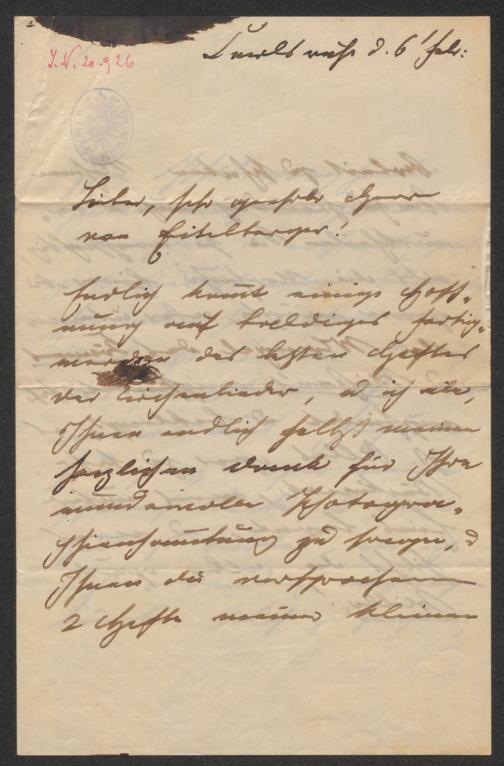 J.N. 20.926
Carlsruhe d. 6t Febr:
Lieber, sehr geehrter Herr
von Eitelberger!
Endlich kommt einige Hoff-
nung auf baldiges fertig-
werden des letzten Heftes
der Kirchenlieder, u ich eile,
Ihnen endlich selbst meinen
herzlichen Dank für Ihre
wundervolle Photogra-
phiensammlung zu sagen, u
Ihnen die versprochenen
2 Hefte meiner kleinen